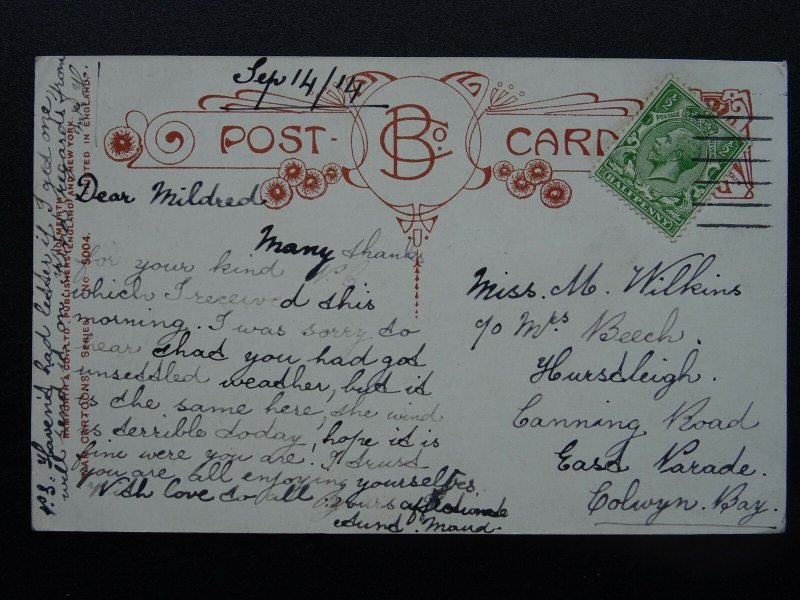 Sep 14/14
POST CARD
B Co.
½ POSTAGE ½
HALFPENNY
Dear Mildred
Many thanks
for your kind P.C.
which I received this
morning. I was sorry to
hear that you had got
unsettled weather, but it
is the same here, the wind
is terrible today, hope it is
fine were you are. I trust
you are all enjoying yourselves
With love to all yours affectionate
Aunt Maud.
Miss. M. Wilkins
c/o Mrs Beech.
Hurstleigh.
Canning Road
East Parade.
Colwyn. Bay.
P.S. Haven't had letter if I get one
will send on
BAMFORTH & CO. LTD PUBLISHERS (ENGLAND) AND NEW YORK.
WAR CARTOONS SERIES No 5004. PRINTED IN ENGLAND.